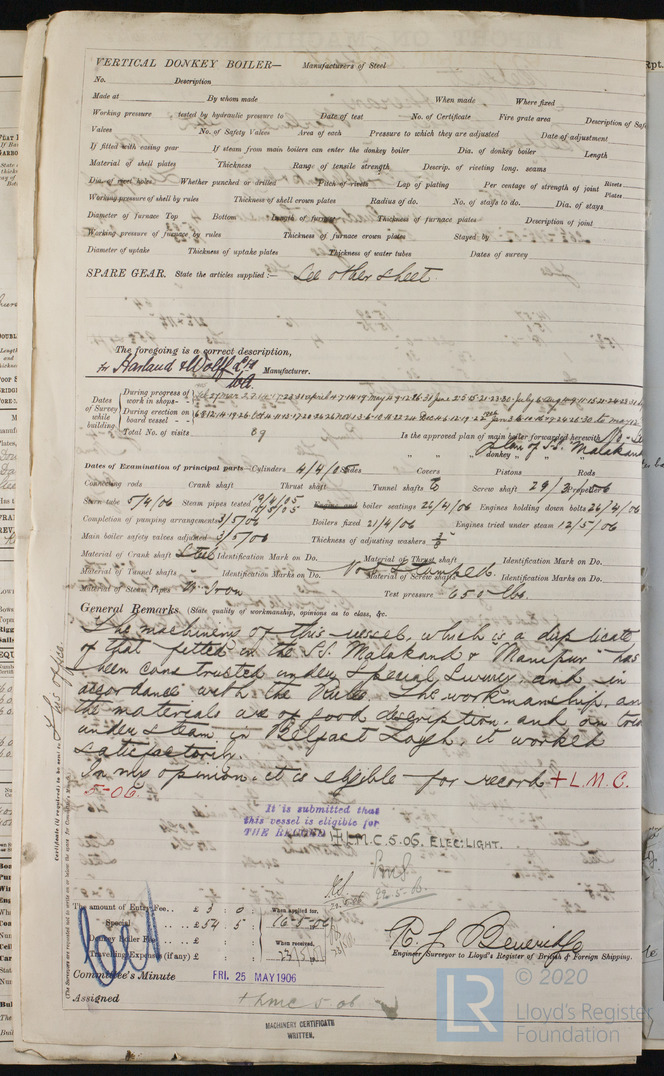 VERTICAL DONKEY BOILER— Manufacturers of Steel
No. Description
Made at By whom made When made Where fixed
Working pressure tested by hydraulic pressure to Date of test No. of Certificate Fire grate area Description of Safe
Valves No. of Safety Valves Area of each Pressure to which they are adjusted Date of adjustment
If fitted with easing gear If steam from main boilers can enter the donkey boiler Dia. of donkey boiler Length
Material of shell plates Thickness Range of tensile strength Descrip. of riveting long. seams
Dia. of rivet holes Whether punched or drilled Pitch of rivets Lap of plating Per centage of strength of joint Rivets Plates
Working pressure of shell by rules Thickness of shell crown plates Radius of do. No. of stays to do. Dia. of stays
Diameter of furnace Top Bottom Length of furnace Thickness of furnace plates Description of joint
Working pressure of furnace by rules Thickness of furnace crown plates Stayed by
Diameter of uptake Thickness of uptake plates Thickness of water tubes Dates of survey
SPARE GEAR. State the articles supplied:— See other sheet
The foregoing is a correct description,
for Harland & Wolff Ltd Manufacturer.
Dates of Survey while building
During progress of work in shops - -
During erection on board vessel - - -
Total No. of visits 89
Is the approved plan of main boiler forwarded herewith No - See
plan of S.S. Malakand
" " donkey " " "
Dates of Examination of principal parts—Cylinders 4/4/05 Slides Covers Pistons Rods
Connecting rods Crank shaft Thrust shaft Tunnel shafts Screw shaft 29/3/06 Propeller
Stern tube 5/4/06 Steam pipes tested Engine and boiler seatings 26/4/06 Engines holding down bolts 26/4/06
Completion of pumping arrangements 3/5/06 Boilers fixed 21/4/06 Engines tried under steam 12/5/06
Main boiler safety valves adjusted 3/5/06 Thickness of adjusting washers
Material of Crank shaft Steel Identification Mark on Do. Material of Thrust shaft Identification Mark on Do.
Material of Tunnel shafts " Identification Marks on Do. Not Stamped. Material of Screw shafts Identification Marks on Do.
Material of Steam Pipes W. Iron Test pressure 650 lbs.
General Remarks (State quality of workmanship, opinions as to class, &c.
The machinery of this vessel, which is a duplicate
of that fitted in the S.S. Malakand & "Manipur" has
been constructed under Special Survey and in
accordance with the Rules. The workmanship, an
the materials are of good description, and on trial
under steam in Belfast Lough, it worked
satisfactorily.
In my opinion, it is eligible for record + L.M.C.
5-06.
It is submitted that
this vessel is eligible for
THE RECORD + L.M.C. 5.06. ELEC: LIGHT.
22.5.06.
The amount of Entry Fee . . £ 3 : 0 : When applied for,
Special . . . . £ 54 : 5 : 16-5-06
Donkey Boiler Fee . . . £ : : When received,
Travelling Expenses (if any) £ : : 23/5/06
R. J. Beveridge
Engineer Surveyor to Lloyd's Register of British & Foreign Shipping.
Committee's Minute FRI. 25 MAY 1906
Assigned + LMC 5.06
MACHINERY CERTIFICATE
WRITTEN.
Certificate (if required) to be sent to
(The Surveyors are requested not to write on or below the space for Committee's Minute.)
© 2020
LR
Lloyd's Register
Foundation